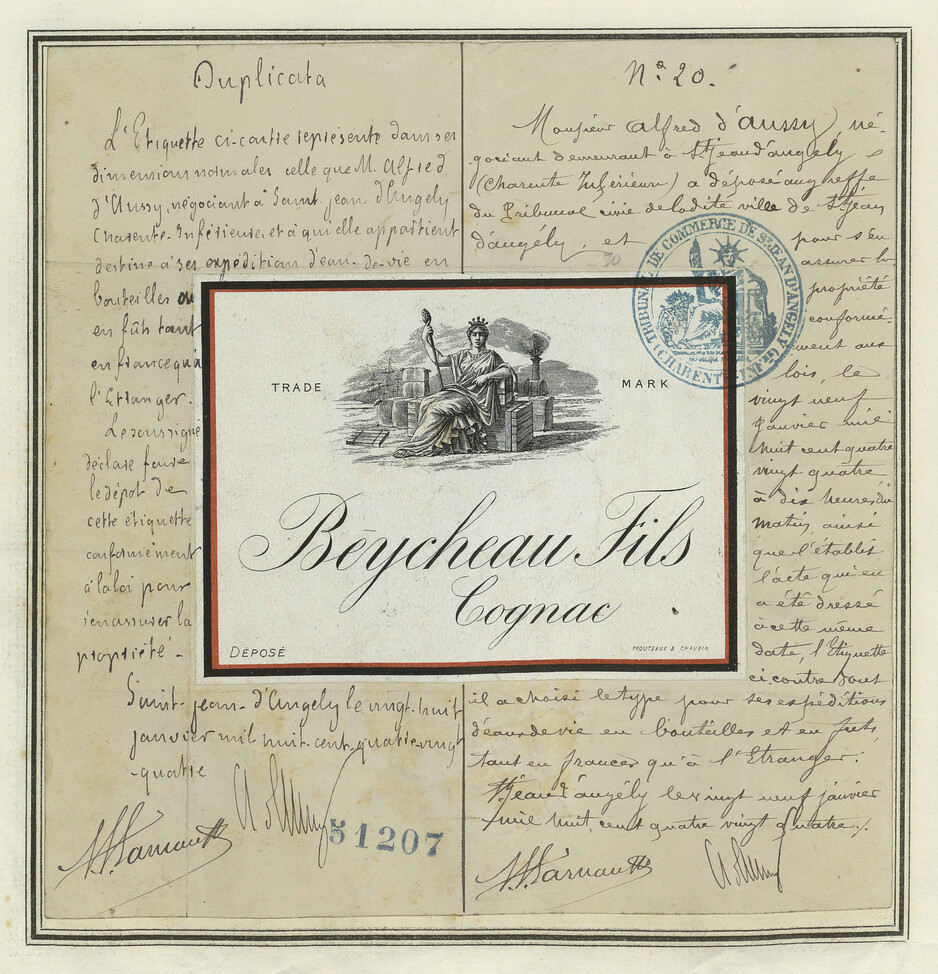 Duplicata
L'Etiquette ci-contre représente dans ses
dimensions normales celle que M. Alfred
d'Aussy, négociant à Saint jean d'Angely
Charente-Inférieure, et à qui elle appartient
destine à ses expéditions d'eau-de-vie en
bouteilles ou
en fûts tant
en france qu'à
l'Etranger.
Le soussigné
déclare faire
le dépôt de
cette étiquette
conformément
à la loi pour
s'en assurer la
propriété.
Saint-jean-d'Angely le vingt-huit
janvier mil huit-cent-quatre-vingt
-quatre
51207
N° 20.
Monsieur Alfred d'aussy, né-
gociant demeurant à St Jean d'angely
(Charente Inférieure) a déposé au greffe
du Tribunal civil de la dite ville de St Jean
d'angély, et pour s'en
assurer la
propriété
conformé-
ment aux
lois, le
vingt neuf
janvier mil
huit cent quatre
vingt quatre
à dix heures du
matin, ainsi
que l'établit
l'acte qui en
a été dressé
à cette même
date, l'Etiquette
ci contre dont
il a choisi le type pour ses expéditions
d'eaux de vie en bouteilles et en futs
tant en france qu'à l'Etranger.
St Jean d'angély le vingt neuf janvier
mil huit cent quatre vingt quatre.
TRIBUNAL DE COMMERCE DE ST JEAN D'ANGELY
CHARENTE INFRE
TRADE MARK
Béycheau Fils
Cognac
DÉPOSÉ
PROUTEAUX & CHAUDIN